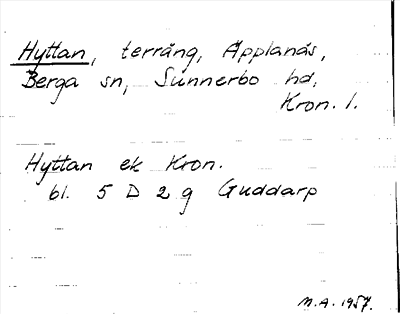 Hyttan, terräng, Äpplanäs,
Berga sn, Sunnerbo hd,
Kron. l.
Hyttan ek Kron.
bl. 5 D 2 g Guddarp
M.A. 1957.